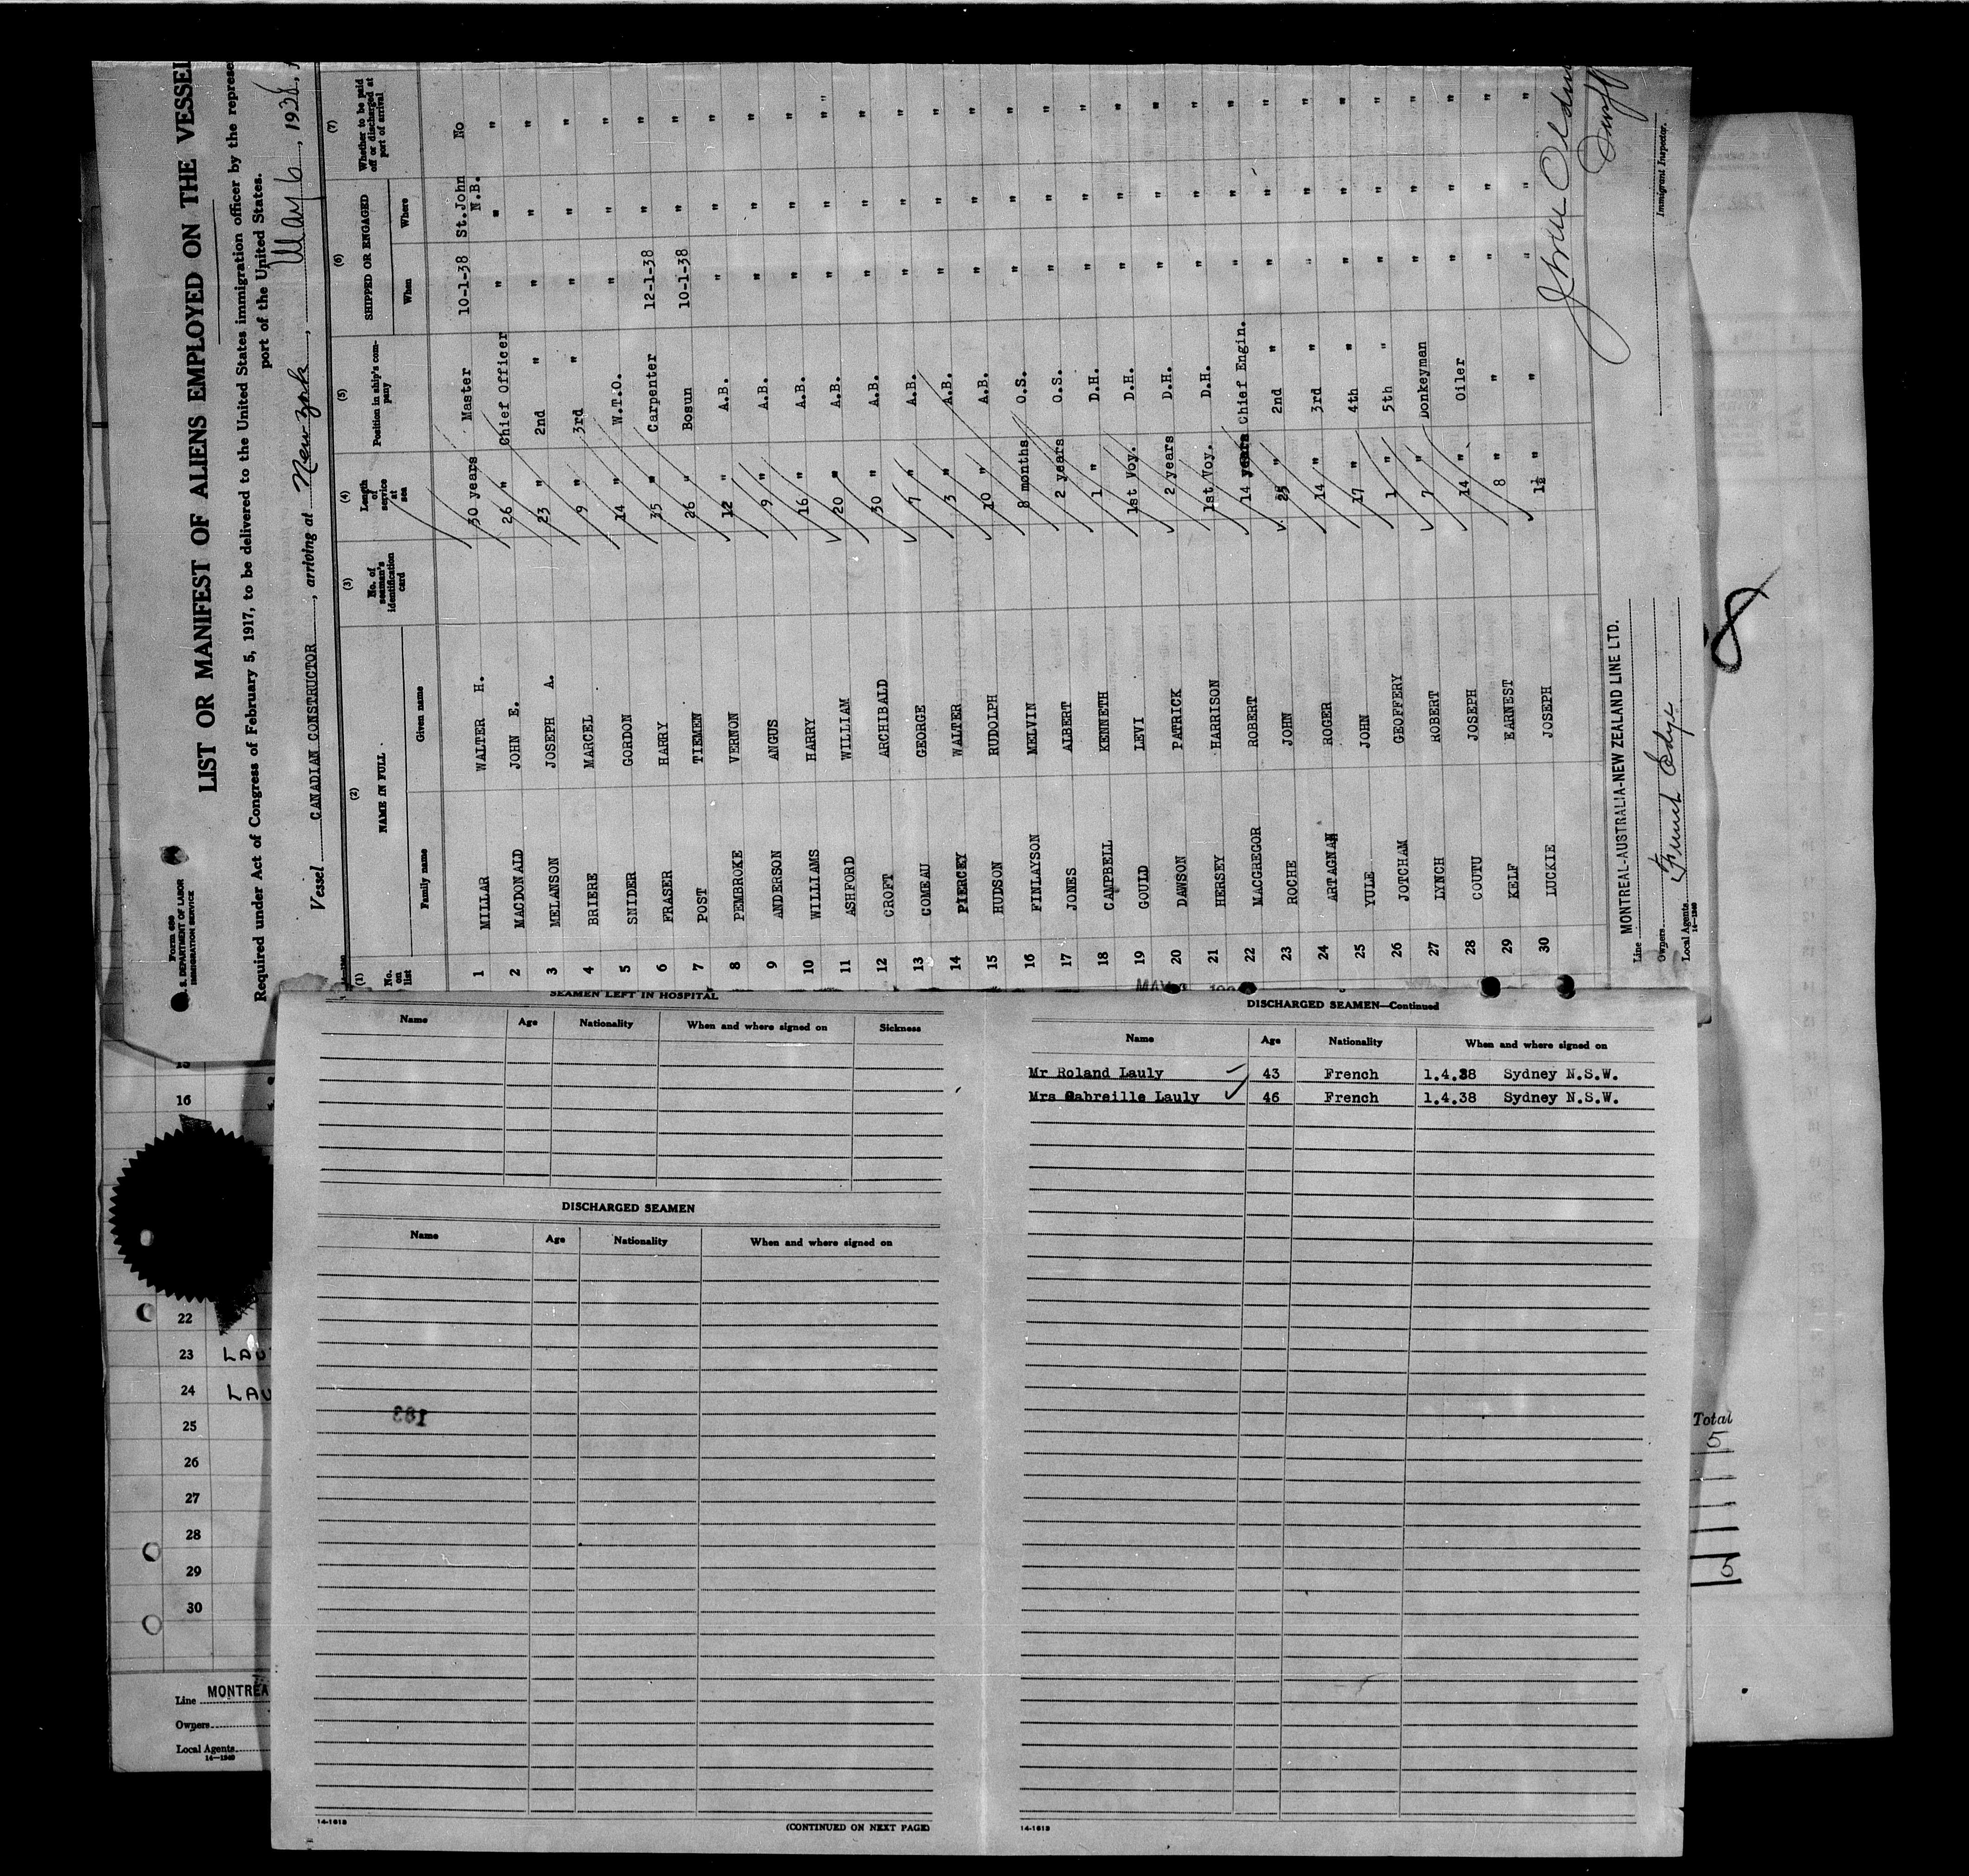 Form 680
U. S. DEPARTMENT OF LABOR
IMMIGRATION SERVICE
LIST OR MANIFEST OF ALIENS EMPLOYED ON THE VESSEL
Required under Act of Congress of February 5, 1917, to be delivered to the United States immigration officer by the represe
port of the United States.
Vessel CANADIAN CONSTRUCTOR, arriving at New York, May 6, 1938,
(1) (2) (3) (4) (5) (6) (7)
No. on list NAME IN FULL No. of seaman's identification card Length of service at sea Position in ship's company SHIPPED OR ENGAGED Whether to be paid off or discharged at port of arrival
Family name Given name When Where
1 MILLAR WALTER H. 30 years Master 10-1-38 St.John N.B. No
2 MACDONALD JOHN E. 26 " Chief Officer " " "
3 MELANSON JOSEPH A. 23 " 2nd " " " "
4 BRIERE MARCEL 9 " 3rd " " " "
5 SNIDER GORDON 14 " W.T.O. " " "
6 FRASER HARRY 35 " Carpenter 12-1-38 " "
7 POST TIEMEN 26 " Bosun 10-1-38 " "
8 PEMBROKE VERNON 12 " A.B. " " "
9 ANDERSON ANGUS 9 " A.B. " " "
10 WILLIAMS HARRY 16 " A.B. " " "
11 ASHFORD WILLIAM 20 " A.B. " " "
12 CROFT ARCHIBALD 30 " A.B. " " "
13 COMEAU GEORGE 7 " A.B. " " "
14 PIERCEY WALTER 3 " A.B. " " "
15 HUDSON RUDOLPH 10 " A.B. " " "
16 FINLAYSON MELVIN 8 months O.S. " " "
17 JONES ALBERT 2 years O.S. " " "
18 CAMPBELL KENNETH 1 " D.H. " " "
19 GOULD LEVI 1st Voy. D.H. " " "
20 DAWSON PATRICK 2 years D.H. " " "
21 HERSEY HARRISON 1st Voy. D.H. " " "
22 MACGREGOR ROBERT 14 years Chief Engin. " " "
23 ROCHE JOHN 25 " 2nd " " " "
24 ARTAGNAN ROGER 14 " 3rd " " " "
25 YULE JOHN 17 " 4th " " " "
26 JOTCHAM GEOFFERY 1 " 5th " " " "
27 LYNCH ROBERT 7 " Donkeyman " " "
28 COUTU JOSEPH 14 " Oiler " " "
29 KELF EARNEST 8 " " " " "
30 LUCKIE JOSEPH 1½ " " " " "
Line MONTREAL-AUSTRALIA-NEW ZEALAND LINE LTD.
Owners
Local Agents
14-1240
Immigrant Inspector.
SEAMEN LEFT IN HOSPITAL
Name Age Nationality When and where signed on Sickness
DISCHARGED SEAMEN
Name Age Nationality When and where signed on
193
14-1613
(CONTINUED ON NEXT PAGE)
DISCHARGED SEAMEN—Continued
Name Age Nationality When and where signed on
Mr Roland Lauly 43 French 1.4.38 Sydney N.S.W.
Mrs Gabreille Lauly 46 French 1.4.38 Sydney N.S.W.
14-1613
16
22
23
24
25
26
27
28
29
30
Line MONTREA
Owners
Local Agents
14-1240
8
Total